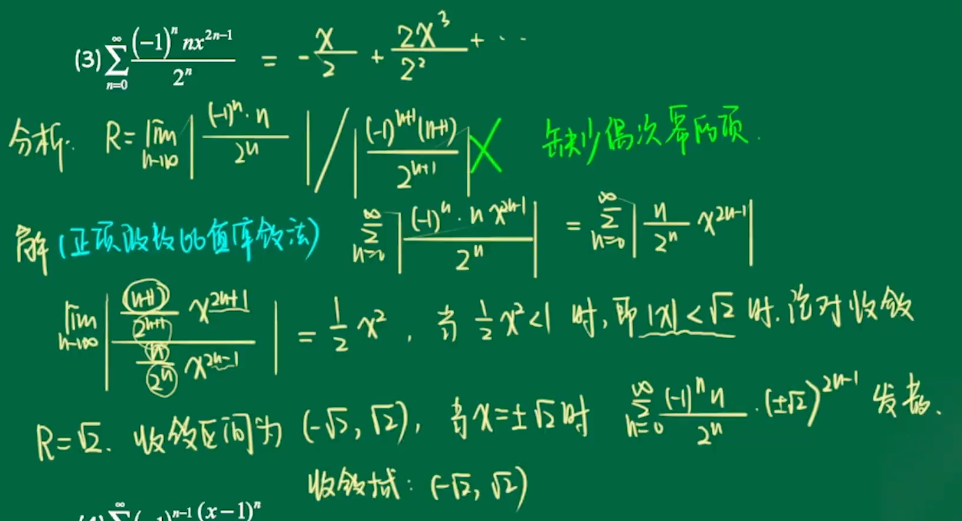 (3) $\sum_{n=0}^{\infty} \frac{(-1)^n nx^{2n-1}}{2^n}$ = $-\frac{x}{2} + \frac{2x^3}{2^2} + \cdots$
分析: $R = \lim_{n\to\infty} \left| \frac{(-1)^n \cdot n}{2^n} \right| / \left| \frac{(-1)^{n+1}(n+1)}{2^{n+1}} \right|$ × 缺少偶次幂的项.
解 (正项级数比值审敛法) $\sum_{n=0}^{\infty} \left| \frac{(-1)^n \cdot n x^{2n-1}}{2^n} \right| = \sum_{n=0}^{\infty} \left| \frac{n}{2^n} x^{2n-1} \right|$
$\lim_{n\to\infty} \left| \frac{\frac{(n+1)}{2^{n+1}} x^{2n+1}}{\frac{n}{2^n} x^{2n-1}} \right| = \frac{1}{2}x^2$, 当 $\frac{1}{2}x^2 < 1$ 时, 即 $|x| < \sqrt{2}$ 时. 绝对收敛
$R = \sqrt{2}$. 收敛区间为 $(-\sqrt{2}, \sqrt{2})$, 当 $x = \pm\sqrt{2}$ 时 $\sum_{n=0}^{\infty} \frac{(-1)^n n}{2^n} \cdot (\pm\sqrt{2})^{2n-1}$ 发散.
收敛域: $(-\sqrt{2}, \sqrt{2})$
$\sum^{\infty} (-1)^{n-1} (x-1)^n$